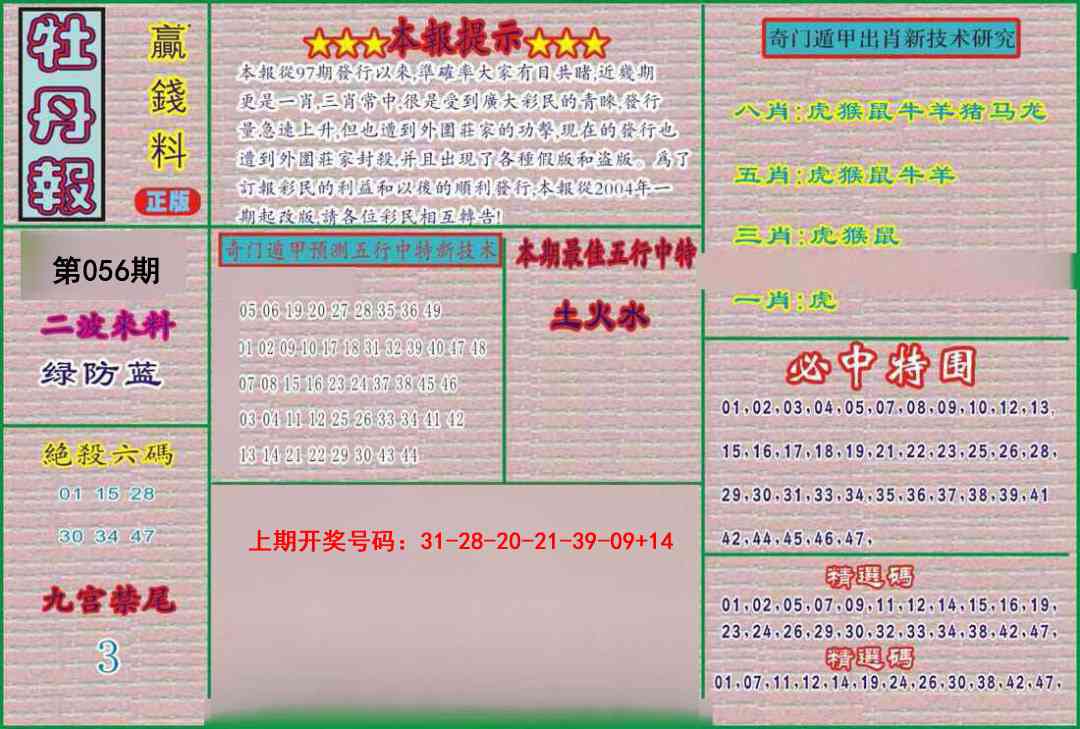 牡丹報
贏錢料
正版
★★★本報提示★★★
本報從97期發行以來,準確率大家有目共睹,近幾期
更是一肖,三肖常中,很是受到廣大彩民的青睞,發行
量急速上升,但也遭到外圍莊家的功擊,現在的發行也
遭到外圍莊家封殺,并且出現了各種假版和盜版。爲了
訂報彩民的利益和以後的順利發行,本報從2004年一
期起改版,請各位彩民相互轉告!
奇门遁甲出肖新技术研究
八肖:虎猴鼠牛羊猪马龙
五肖:虎猴鼠牛羊
三肖:虎猴鼠
一肖:虎
第056期
二波來料
绿防蓝
奇门遁甲预测五行中特新技术
05 06 19 20 27 28 35 36 49
01 02 09 10 17 18 31 32 39 40 47 48
07 08 15 16 23 24 37 38 45 46
03 04 11 12 25 26 33 34 41 42
13 14 21 22 29 30 43 44
本期最佳五行中特
土火水
必中特围
01,02,03,04,05,07,08,09,10,12,13,
15,16,17,18,19,21,22,23,25,26,28,
29,30,31,33,34,35,36,37,38,39,41
42,44,45,46,47,
絕殺六碼
01 15 28
30 34 47
九宫禁尾
3
上期开奖号码：31-28-20-21-39-09+14
精選碼
01,02,05,07,09,11,12,14,15,16,19,
23,24,26,29,30,32,33,34,38,42,47,
精選碼
01,07,11,12,14,19,24,26,30,38,42,47,